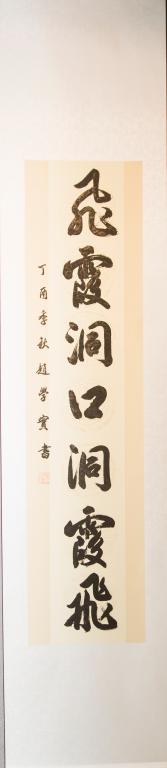 飛霞洞口洞霞飛
丁酉季秋趙學賓書